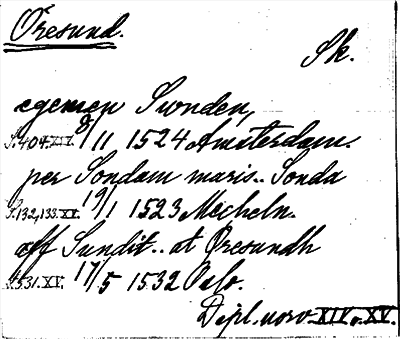 Øresund.
Sk.
egemen Swnden,
S.404.XIV. 8/11 1524 Amsterdam.
per Sondam maris.. Sonda
S.132,133.XV. 19/1 1523 Mecheln.
off Sundit.. at Øresundh
S.531.XV. 17/5 1532 Oslo.
Dipl. norv. XIV o. XV.